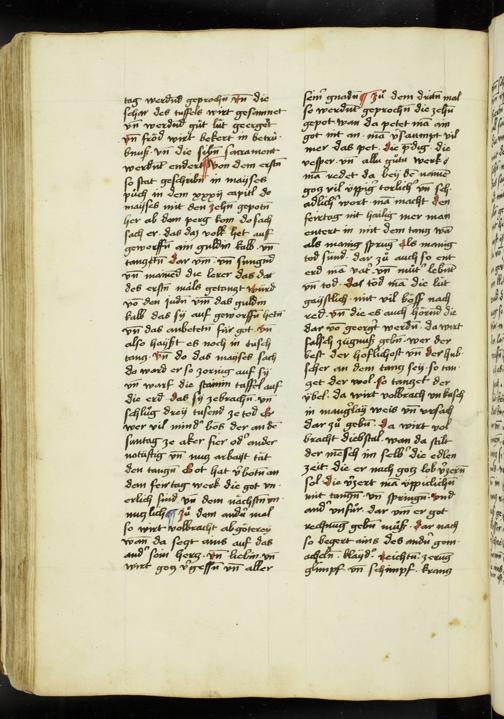 tag werdnd geprochn vn̄ die
schar des tuffels wirt gesamnet
vn̄ werdnd gůt lüt geerget
vn̄ fröd wirt bekert in betrü-
bnuß vn̄ die sibn̄ sacrament
werdnt endert von dem erstn̄
so stat geschribn̄ in moyses
půch in dem xxxij capitl do
moyses mit den zehn̄ gepotn̄
her ab dem perg kom do sach
sach er das daz volk het auf
geworffn̄ ain guldin kalb vn̄
tanztn̄ dar vm̄ vn̄ sungnd
vn̄ mained die lerer das das
des erstn̄ mals getanzt wurd
vo den judn̄ vm̄ das guldin
kalb das sy auf geworffn̄ hetn̄
vn̄ das anbetetn̄ für got vn̄
also haÿst es noch in tusch
tanz vn̄ do das moyses sach
do ward er so zornig auf sy
vn̄ warf die stainin taffel auf
die erd das sy zebrachn̄ vn̄
schlůg dreÿ tusend ze tod Er
wer vil mind' bös der an de
suntag ze aker fier od' ander
notdürftig vn̄ nuz arbait tät
den tanzn̄ Got hat v'botn an
dem feirtag werk die got vn̄
erlich sind vn̄ dem nächstn̄
nuzlich Zů dem andn' mal
so wirt volbracht abgöterey
wan da sezt ains auf das
and' sein herz vn̄ liebin vn̄
wirt goz v'gessn̄ vn̄ aller
seinr gnadn̄ Zů dem dritn̄ mal
so werdnt geprochn̄ die zehn̄
gepot wan da petet mā ain
got nit an mā v'saumpt vil
mer das pet die p'dig die
vesper vn̄ alli gůtu werk
mā redet da beÿ de namē
goz vil v'ppig törlich vn̄ sch-
adlich wort mā macht den
feirtag nit hailig mer man
entert in mit dem tanz wā
als manig sprug als manig
tod sünd dar zů auch so ent
erd mā vat' vn̄ můt' lebnd
vn̄ tod das töd mā die lüt
gaÿstlich mit vil böser nach
red vn̄ die es auch hörnd die
dar vo geergt werdn̄ da wirt
falsch zügnuß gebn̄ wer der
best der hoflichost vn̄ der hüb-
scher an dem tanz seÿ so tan-
zet der wol so tanzet der
übel da wirt volbrach vnkusch
in mangerlaÿ weis vn̄ vrsach
dar zů gebn̄ da wirt vol
bracht diebstal wan da stilt
der mēsch im selb die edlen
zeit die er nach goz lob v'zern̄
sol die v'zert mā v'ppiclichn̄
mit tanzn̄ vn̄ springn̄ vnd
and' vnfůr dar vm̄ er got
rechnug gebn̄ můß dar nach
so begert ains des andn' gem-
acheln klayd' leichtn̄ zerug
glimpf vn̄ schimpf kranz